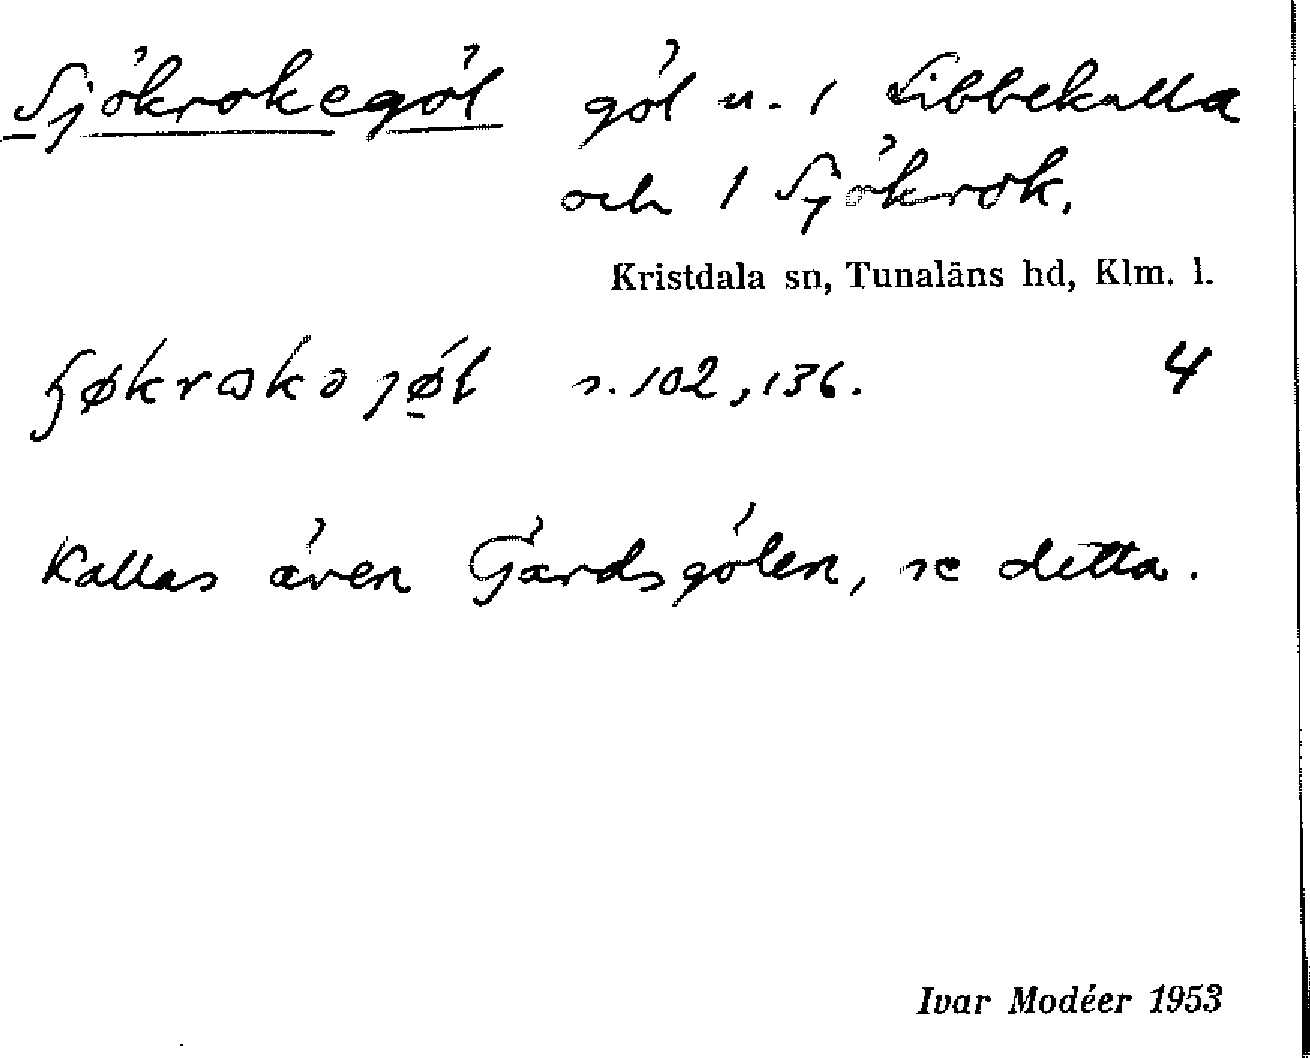 Sjökrokegöl göl u. 1 Libbekulla
och 1 Sjökrok.
Kristdala sn, Tunaläns hd, Klm. l.
s. 102, 136. 4
Kallas även Gårdsgölen, se detta.
Ivar Modéer 1953